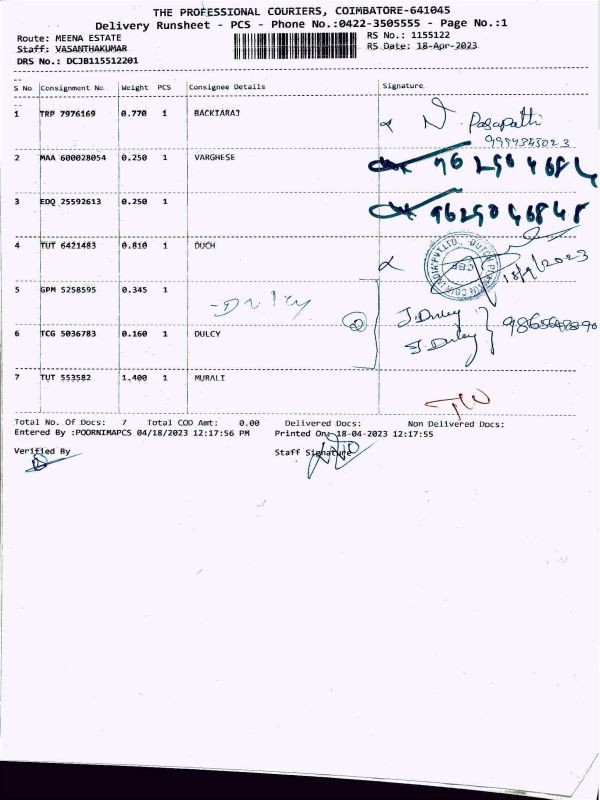 THE PROFESSIONAL COURIERS, COIMBATORE-641045
Delivery Runsheet - PCS - Phone No.:0422-3505555 - Page No.:1
Route: MEENA ESTATE
RS No.: 1155122
Staff: VASANTHAKUMAR
RS Date: 18-Apr-2023
DRS No.: DCJB115512201
S No Consignment No Weight PCS Consignee Details Signature
1 TRP 7976169 0.770 1 BACKIARAJ
N. Pasapathi
2 MAA 600028054 0.250 1 VARGHESE
3 EDQ 25592613 0.250 1
9629046848
4 TUT 6421483 0.810 1 DUCH
18/4/2023
5 GPM 5258595 0.345 1 Dulcy J. Dulcy
6 TCG 5036783 0.160 1 DULCY J. Dulcy
7 TUT 553582 1.400 1 MURALI
Total No. Of Docs: 7 Total COD Amt: 0.00 Delivered Docs: Non Delivered Docs:
Entered By :POORNIMAPCS 04/18/2023 12:17:56 PM Printed On: 18-04-2023 12:17:55
Verified By Staff Signature